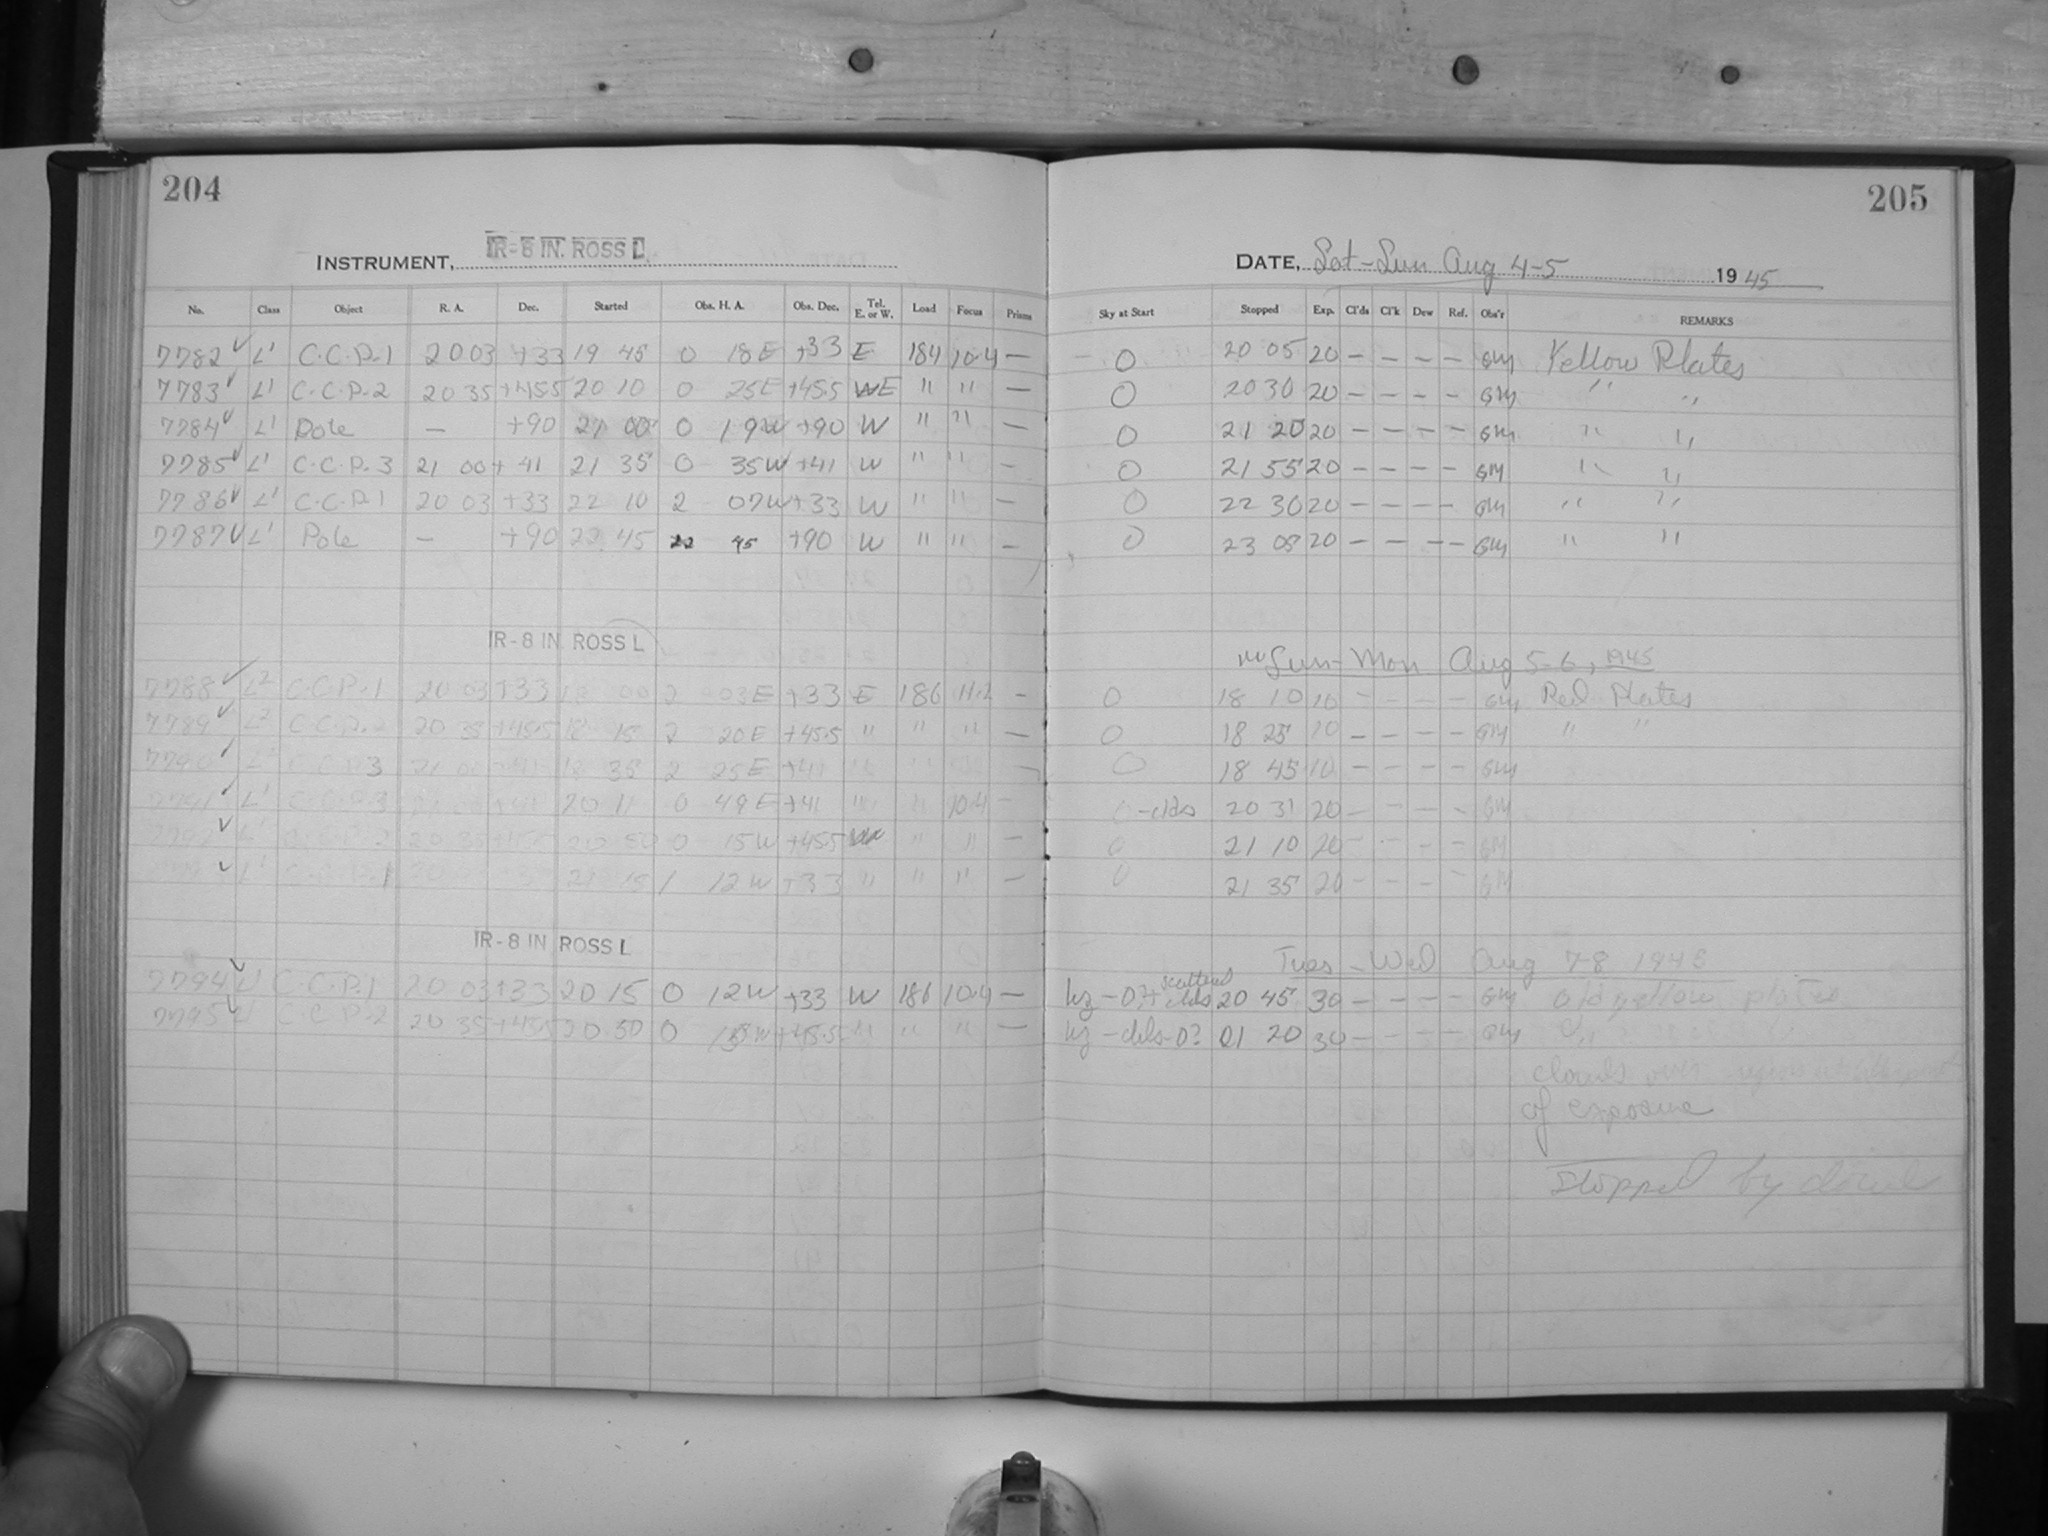 204
INSTRUMENT, IR-8 IN. ROSS L
No. Class Object R. A. Dec. Started Obs. H. A. Obs. Dec. Tel. E. or W. Load Focus Prisms
7782 L' C.C.P.1 20 03 +33 19 45 0 18E +33 E 184 10.4 —
7783 L' C.C.P.2 20 35 +45.5 20 10 0 25E +45.5 E " " —
7784 L' Pole — +90 21 00 0 19W +90 W " " —
7785 L' C.C.P.3 21 00 +41 21 35 0 35W +41 W " " —
7786 L' C.C.P.1 20 03 +33 22 10 2 07W +33 W " " —
7787 L' Pole — +90 22 45 22 45 +90 W " " —
IR-8 IN ROSS L
7788 L2 C.C.P.1 20 03 +33 18 00 2 03E +33 E 186 11.2 —
7789 L2 C.C.P.2 20 35 +45.5 18 15 2 20E +45.5 " " " —
7790 L2 C.C.P.3 21 00 +41 18 35 2 25E +41 —
7791 L' C.C.P.3 +41 20 11 0 49E +41 " " 10.4 —
L' C.C.P.2 20 35 20 50 0 15W +45.5 " " —
L' C.C.P.1 21 15 1 12W +33 " " " —
IR-8 IN ROSS L
7794 L' C.C.P.1 20 03 +33 20 15 0 12W +33 W 186 10.4 —
7795 L' C.C.P.2 20 35 +45.5 20 50 0 +45.5 " " " —
205
DATE, Sat-Sun Aug 4-5 1945
Sky at Start Stopped Exp. Cl'ds Cl'k Dew Ref. Obs'r REMARKS
0 20 05 20 — — — — GM Yellow Plates
0 20 30 20 — — — — GM " "
0 21 20 20 — — — — GM " "
0 21 55 20 — — — — GM " "
0 22 30 20 — — — — GM " "
0 23 05 20 — — — — GM " "
Sun-Mon Aug 5-6, 1945
0 18 10 10 — — — — GM Red Plates
0 18 25 10 — — — — GM " "
0 18 45 10 — — — — GM
0-clds 20 31 20 — — — — GM
0 21 10 20 — — — — GM
0 21 35 20 — — — — GM
Tues-Wed Aug 7-8 1945
hz-0?+ scattered clds 20 45 30 — — — — GM old yellow plates
hz-clds-0? 01 20 30 — — — — GM " "
clouds over
of exposure
Stopped by clouds